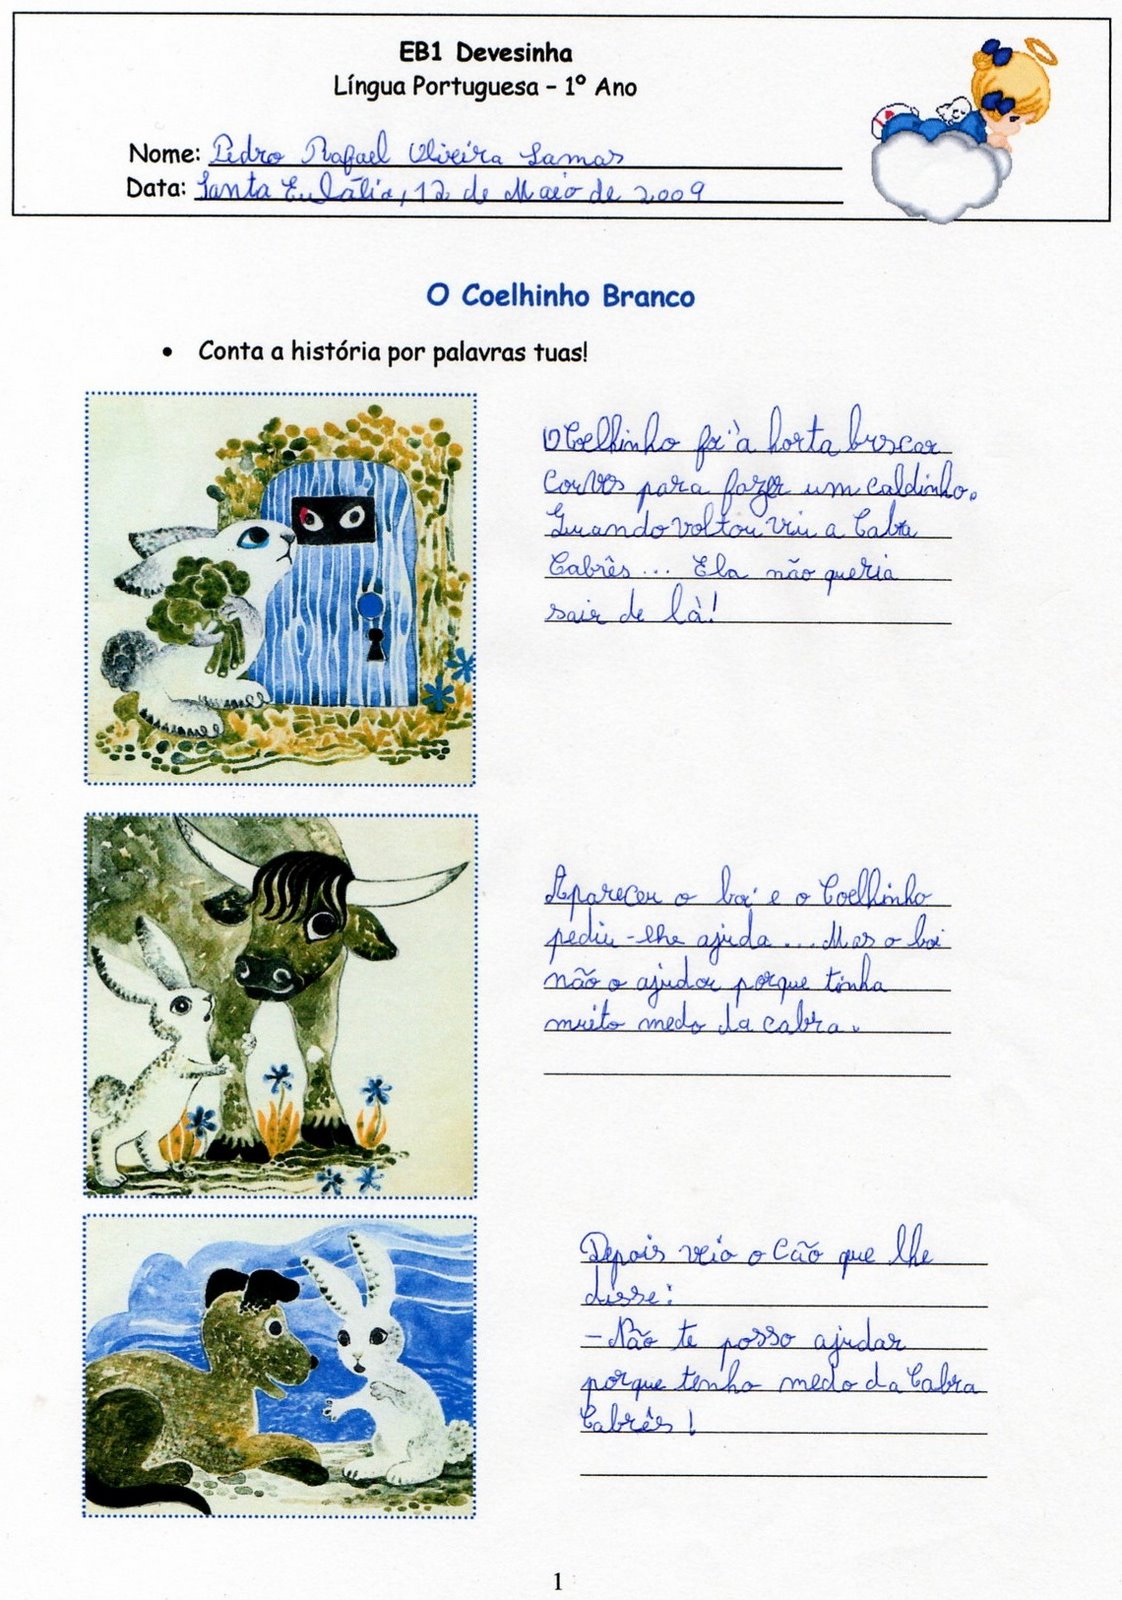 EB1 Devesinha
Língua Portuguesa – 1º Ano
Nome: Pedro Rafael Oliveira Lamas
Data: Santa Eulália, 12 de Maio de 2009
O Coelhinho Branco
• Conta a história por palavras tuas!
O Coelhinho foi à horta buscar
couves para fazer um caldinho.
Quando voltou viu a Cabra
Cabrês... Ela não queria
sair de lá!
Apareceu o boi e o Coelhinho
pediu-lhe ajuda ... Mas o boi
não o ajudou porque tinha
muito medo da cabra.
Depois veio o Cão que lhe
disse:
– Não te posso ajudar
porque tenho medo da Cabra
Cabrês!
1